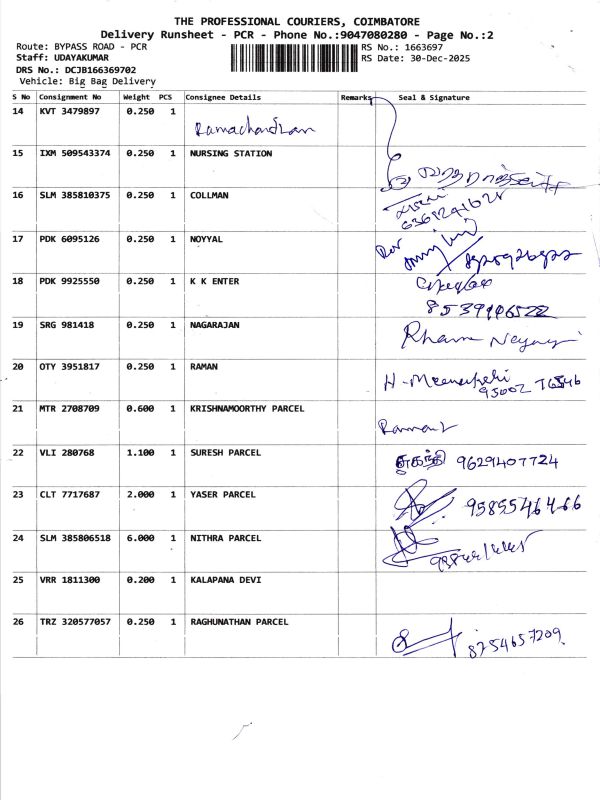 THE PROFESSIONAL COURIERS, COIMBATORE
Delivery Runsheet - PCR - Phone No.:9047080280 - Page No.:2
Route: BYPASS ROAD - PCR
RS No.: 1663697
Staff: UDAYAKUMAR
RS Date: 30-Dec-2025
DRS No.: DCJB166369702
Vehicle: Big Bag Delivery
S No Consignment No Weight PCS Consignee Details Remarks Seal & Signature
14 KVT 3479897 0.250 1
Ramachandran
15 IXM 509543374 0.250 1 NURSING STATION
16 SLM 385810375 0.250 1 COLLMAN
17 PDK 6095126 0.250 1 NOYYAL
18 PDK 9925550 0.250 1 K K ENTER
19 SRG 981418 0.250 1 NAGARAJAN
20 OTY 3951817 0.250 1 RAMAN
H-Meenakshi
21 MTR 2708709 0.600 1 KRISHNAMOORTHY PARCEL
22 VLI 280768 1.100 1 SURESH PARCEL
சுகந்தி 9629407724
23 CLT 7717687 2.000 1 YASER PARCEL
9585546466
24 SLM 385806518 6.000 1 NITHRA PARCEL
25 VRR 1811300 0.200 1 KALAPANA DEVI
26 TRZ 320577057 0.250 1 RAGHUNATHAN PARCEL
8754657209